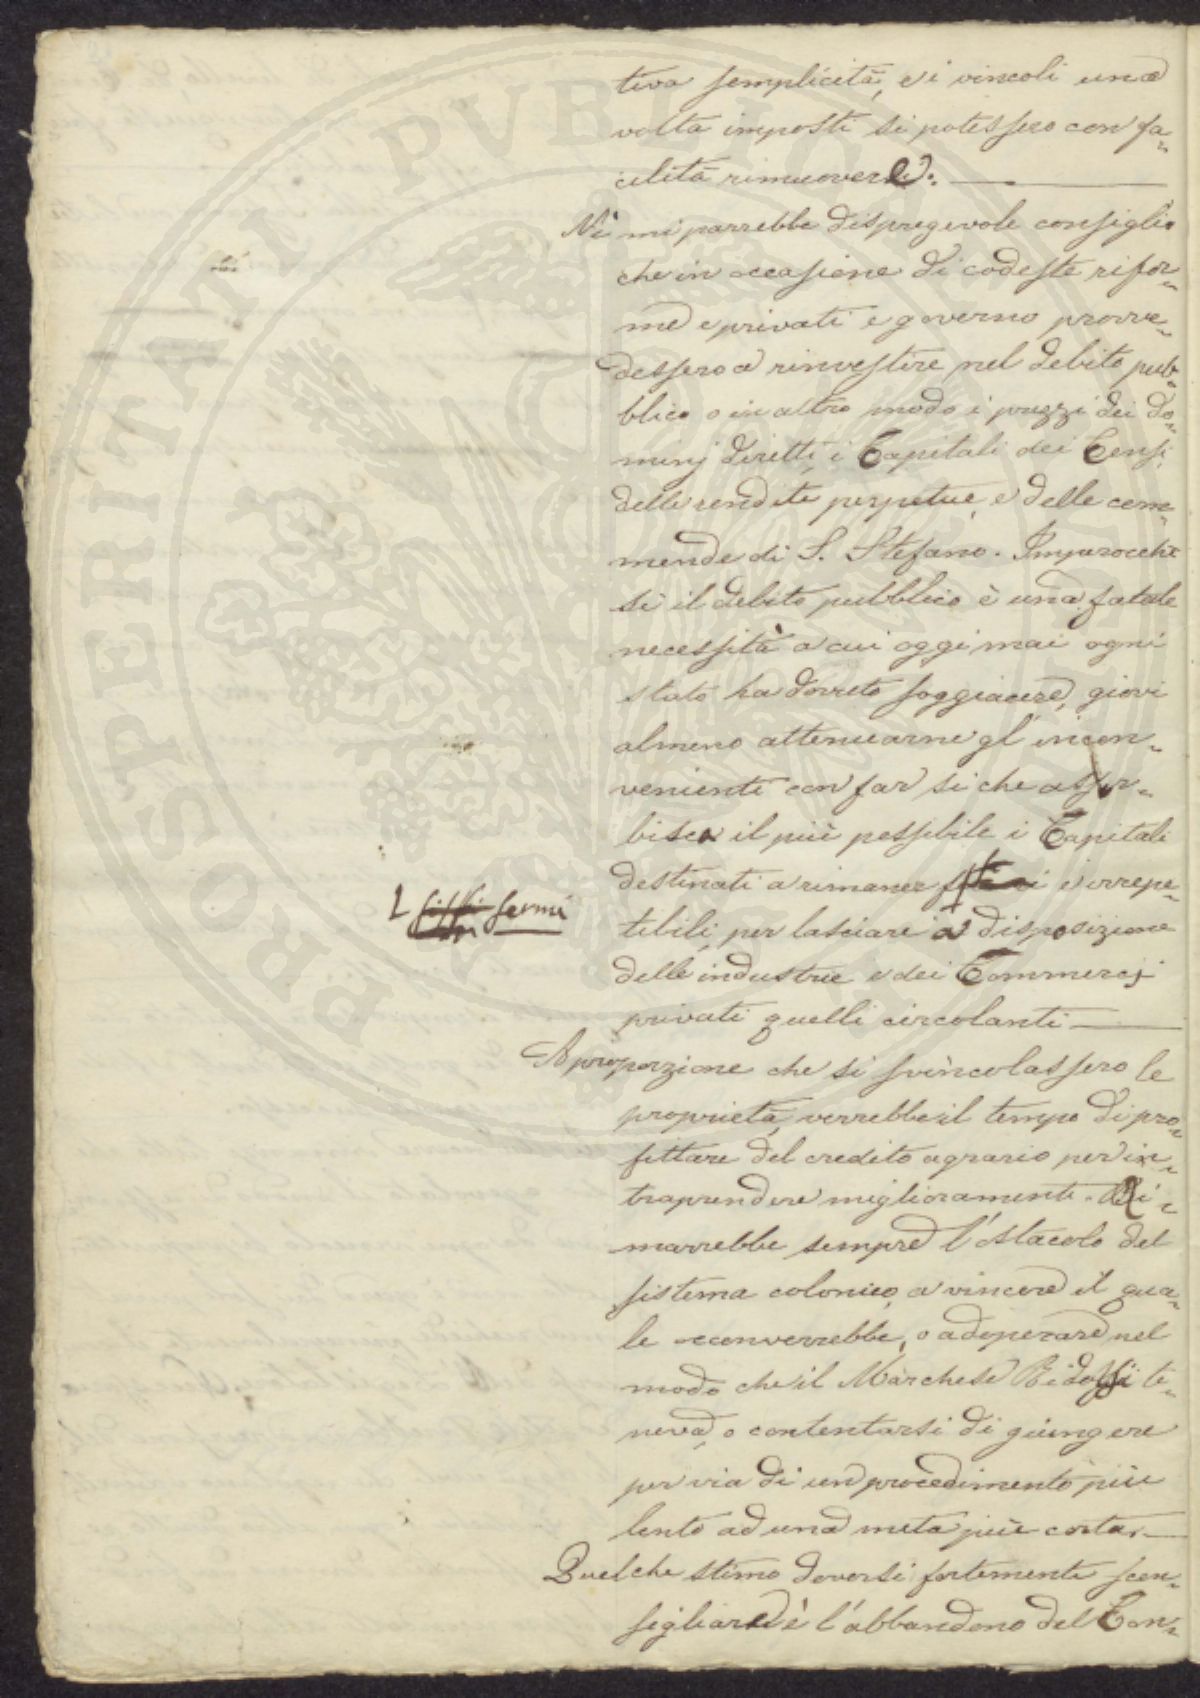 tiva semplicità, e i vincoli una
volta imposti si potessero con fa-
cilità rimuovere. —
Nè mi parrebbe dispregevole consiglio
che in occasione di codeste rifor-
me e privati e governo provve-
dessero a rinvestire nel debito pub-
blico o in altro modo i prezzi dei do-
minj diretti, i Capitali dei Censi,
delle rendite perpetue, e delle com-
mende di S. Stefano. Imperocchè
se il debito pubblico è una fatale
necessità a cui oggimai ogni
stato ha dovuto soggiacere, giovi
almeno attenuarne gl'incon-
venienti con far sì che assor-
bisca il più possibile i Capitali
destinati a rimaner e irrepe-
fermi
tibili, per lasciare a disposizione
delle industrie e dei Commercj
privati quelli circolanti —
A proporzione che si svincolassero le
proprietà, verrebbe il tempo di pro-
fittare del credito agrario per in-
traprendere miglioramenti. Ri-
marrebbe sempre l'ostacolo del
sistema colonico, a vincere il qua-
le converrebbe, o adoperare nel
modo che il Marchese Ridolfi te-
neva, o contentarsi di giungere
per via di un procedimento più
lento ad una meta più corta. —
Quel che stimo doversi fortemente scon-
sigliare è l'abbandono del Con-
PROSPERITATI PVBLICAE